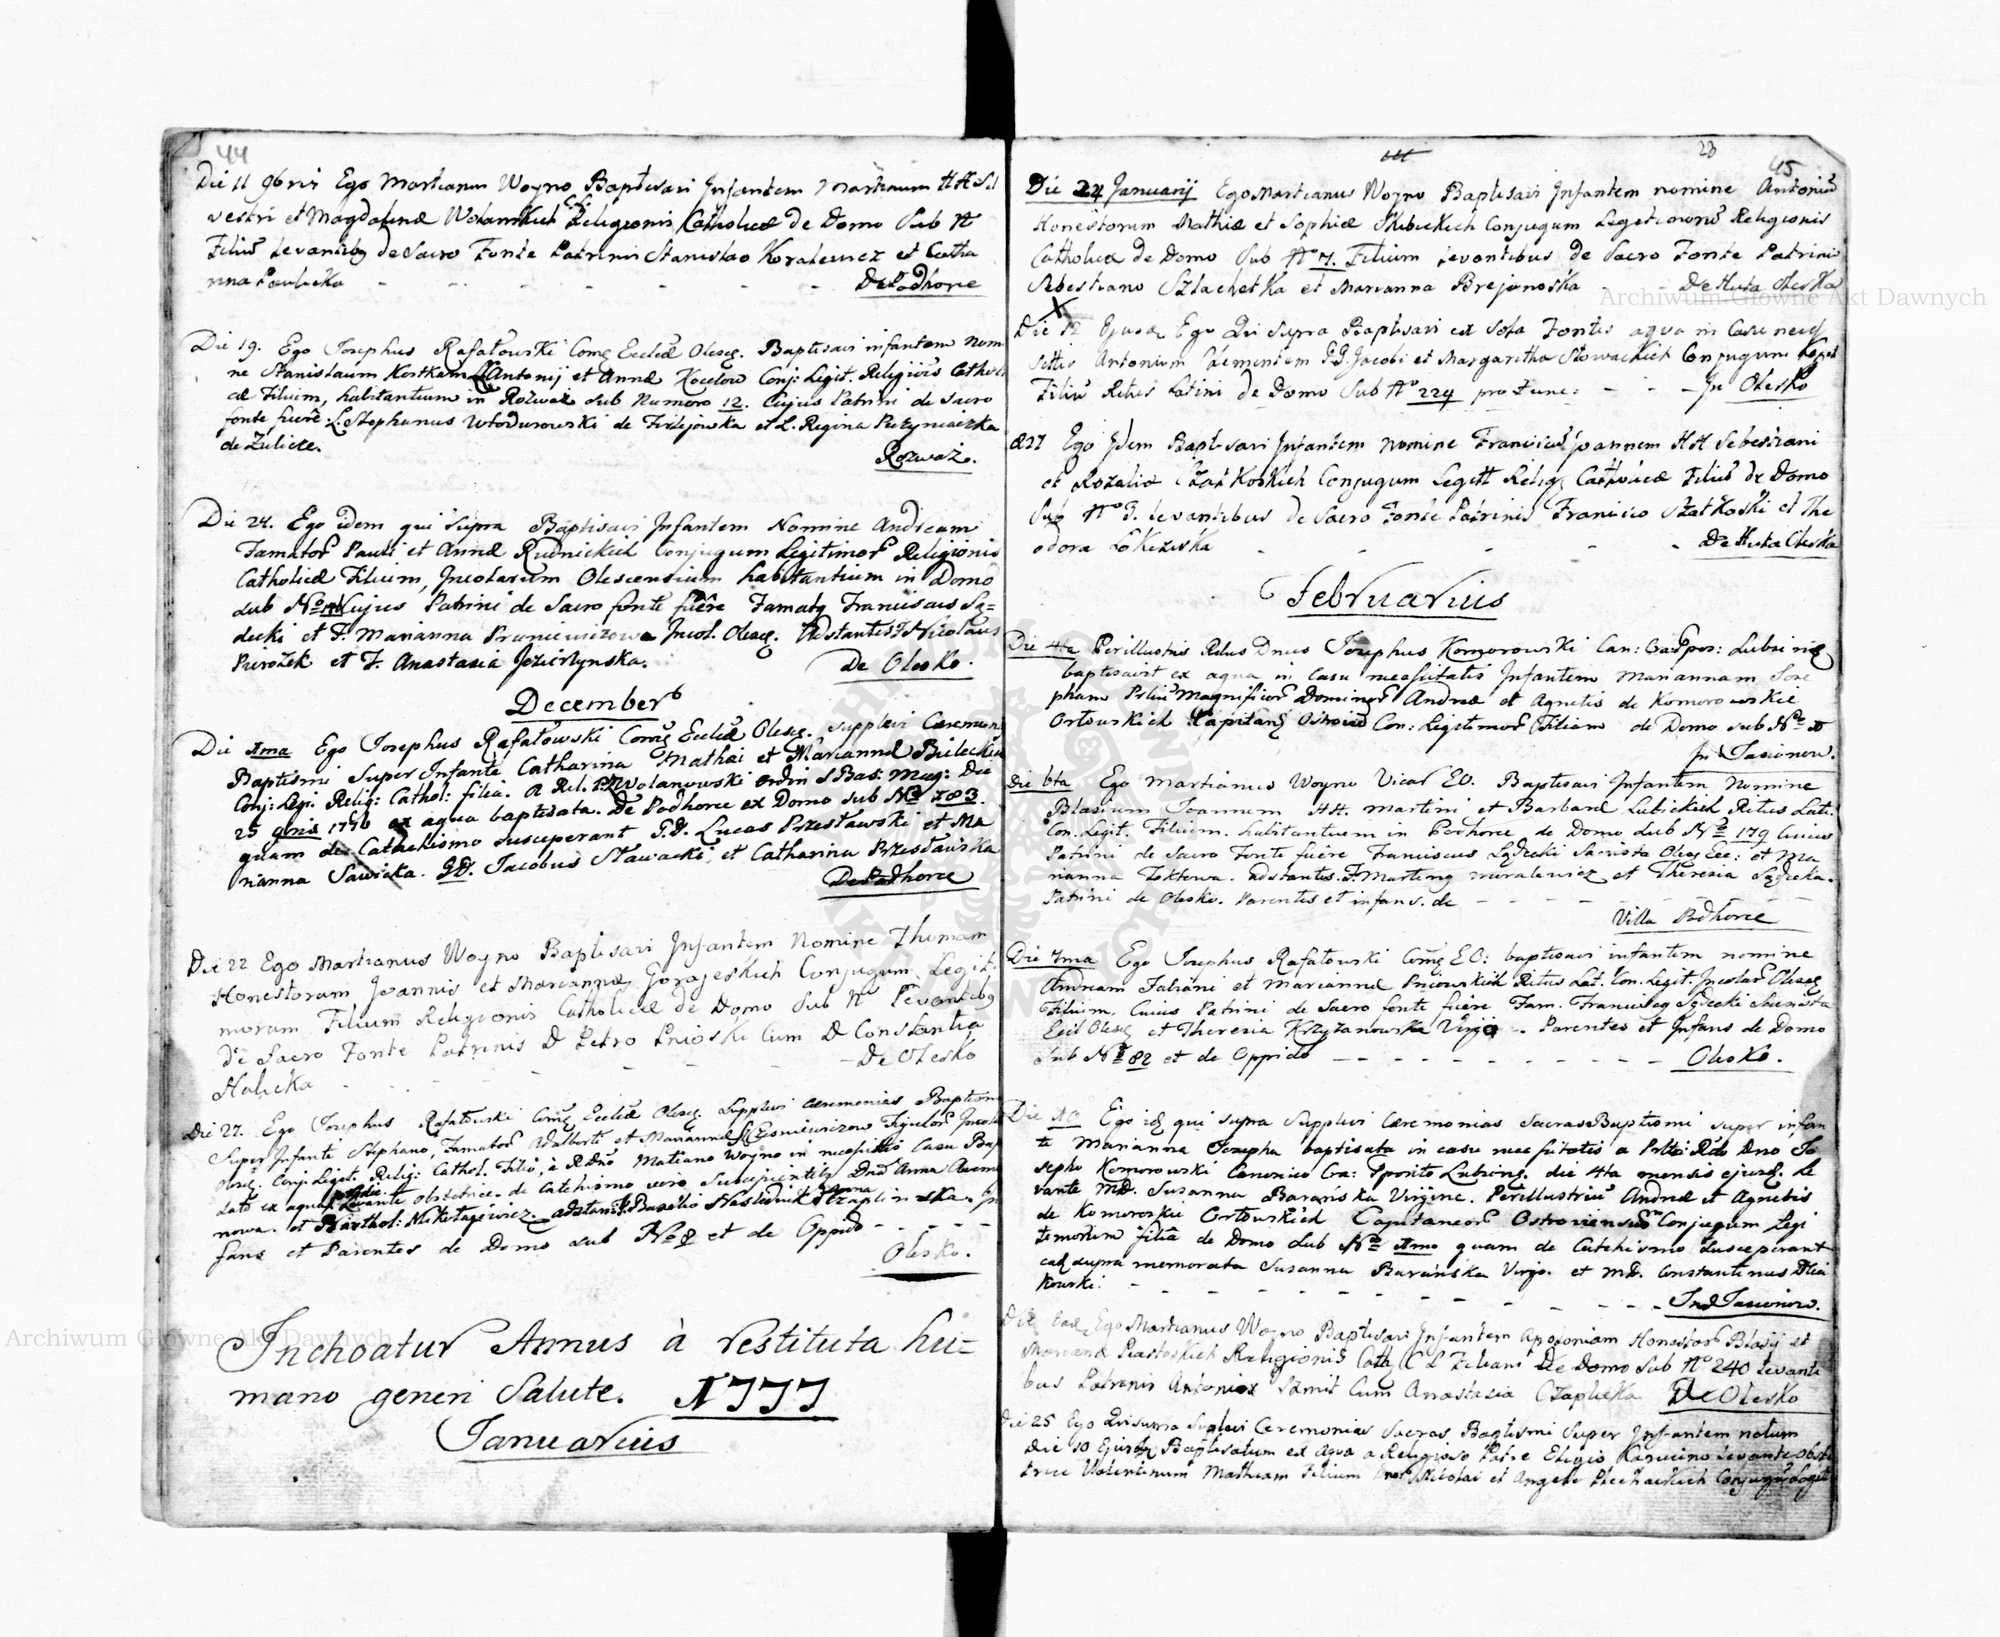 44
Die 11 9bris Ego Martianus Woyno Baptisavi Infantem Martinum HH Sil
vestri et Magdalenæ Wolanskich Religionis Catholicæ de Domo Sub N
Filiũ Levantibq de Sacro Fonte Patrinis Stanislao Koralewicz et Catha
rina Pawlicka - - - - - - De Podhorce
Die 19. Ego Josephus Rafałowski Comg Eccliæ Olesg. Baptisavi infantem nomi
ne Stanislaum Kostkam Antonij et Annæ Kocelow Conj: Legit. Religiois Catholi
cæ Filium, habitantium in Rozwaz sub Numero 12. Cujus Patrini de sacro
fonte fuere L. Stephanus Włodurowski de Firlejowka et L. Regina Puzyniaczka
de Zulicze.
Rozważ.
Die 24. Ego idem qui supra Baptisavi Infantem Nomine Andream
Famator Pauli et Annæ Rudnickich Conjugum Legitimor Religionis
Catholicæ Filium, Incolarum Olescensium habitantium in Domo
sub No Cujus Patrini de Sacro fonte fuêre Famatq Franciscus Są=
decki et F. Marianna Pruniewiczowa Incol. Olesg. Adstantes F Nicolaus
Pierożek et F. Anastasia Jezierzynska.
De Olesko.
December
Die 1ma Ego Josephus Rafałowski Comg Eccliæ Olesg. supplevi Cæremon
Baptismi super Infante Catharina Mathæi et Mariannæ Bieleckich
Conj: Legi: Relig: Cathol: filia. a Rel. P. Wolanowski Ordin S Bas: Mag: Die
25 9bris 1776 ex aqua baptisata. De Podhorce ex Domo sub No 183.
quam de Catechismo susceperant G.D. Lucas Przesławski et Ma
rianna Sawicka. GD. Jacobus Sławacki, et Catharina Przesławska
De Podhorce
Die 22 Ego Martianus Woyno Baptisavi Infantem Nomine Thomam
Honestorum Joannis et Mariannæ Gorajeskich Conjugum Legit:
morum Filium Religionis Catholicæ de Domo Sub No Levantibq
de Sacro Fonte Patrinis D Petro Pnioski cum D Constantia
Halicka - - - - - - - De Olesko
Die 27. Ego Josephus Rafałowski Comg Eccliæ Olesg. Supplevi Cæremonias Baptismi
super Infante Stephano, Famator Walberti et Mariannæ
Olesg. Conj: Legit. Relig: Cathol. Filio, à RDno Matiano Woyno in necessitis Casu Bap
dato ex aqua Levante obstetrice. de Catechismo vero Suscipientibq Dnâ Anna
nowa. et Barthol: Mikołagewicz. adstan: F. Basilio Nasladnik Czaplinska. In
fans et Parentes de Domo sub No 8 et de Oppido - - - -
Olesko.
Inchoatur Annus à restituta hu=
mano generi Salute. 1777
Januarius
23
45
Die 24 Januarij Ego Martianus Woyno Baptisavi Infantem nomine Antoniũ
Honestorum Mathiæ et Sophiæ Skibickich Conjugum Legetimorũ Religionis
Catholicæ de Domo Sub No 7. Filium Levantibus de Sacro Fonte Patrinis
Sebestiano SzlachetKa et Marianna Brejanoska - - De Huta Oleska
Die 12 Ejusdq Ego Qui supra Baptisavi ex sola Fontis aqua in Casu neces
sitis Antonium Clementem G.D. Jacobi et Margaritha Słowackich Conjugum Legit
Filiũ Ritus Latini de Domo Sub No 224 pro tunc: - - - In Olesko
27 Ego Idem Baptisavi Infantem Nomine Franciscũ Joannem HH Sebestiani
et Rozaliæ SzatKoskich Conjugum Legitt Relig Catholicæ Filiũ de Domo
Sub No 9. levantibus de Sacro Fonte Patrinis Francisco SzatKoski et The
odora LoKczeska - - - - - De Huta Oleska
Februarius
Die 4ta Perillustris Rdus Dnus Josephus Komorowski Can: Cath
baptisavit ex aqua in casu necessitatis Infantem Mariannam Jose
pham Prlliũ Magnificor Dominor Andreæ et Agnetis de Komorowskie
Orłowskich Capitang Ostroviẽ Con: Legitimor Filiam de Domo sub No 1
In Jasionow.
Die 6ta Ego Martianus Woyno Vicar EO. Baptisavi Infantem Nomine
Blasium Joannem HH. Martini et Barbaræ Lubickich Ritus Lati:
Con: Legit. Filium. habitantium in Podhorce de Domo Sub No 179 Cuius
Patrini de Sacro Fonte fuêre Franciscus Sądecki Sacrista Olesg Ecc: et Ma
rianna Toktowa. adstantes. F. Martinq muralewicz et Theresia Sądecka.
Patrini de Olesko. Parentes et infans. de - - - - - -
Villa Podhorce
Die 7ma Ego Josephus Rafałowski Comg EO: baptisavi infantem nomine
Andream Fabiani et Mariannæ Pniowskich Ritus Lat. Con. Legit. Incolar Olesg
Filium. Cuius Patrini de Sacro fonte fuêre Fam. Franciscq Sądecki Sacrista
Eccl Olesg et Theresia Krzyżanowska Virgo. Parentes et Infans de Domo
Sub No 82 et de Oppido - - - - - - - - - Olesko.
Die 10 Ego idq qui supra supplevi Cæremonias Sacras Baptismi super infan
te Marianna Josepha baptisata in casu necessitatis a Perill: Rdo Dno Jo
sepho Komorowski Canonico Cra: die 4ta mensis ejusdg. Le
vante MD. Susanna Baranska Virgine. Perillustriũ Andreæ et Agnetis
de Komorowskie Orłowskich Capitaneor Ostroviensiũ Conjugum Legi
timorum filiâ de Domo Sub No 1mo quam de Catechismo susceperant
eadg supra memorata Susanna Barańska Virgo. et MD. Constantinus
kowski: - - - - - - - - - In Jasionow.
Die Ego Martianus Woyno Baptisavi Infantem Apoloniam Honestor Blasij et
Mariannæ Piastoskich Religionis Cath C L Filiam De Domo Sub No 240 Levanti
bus Patrinis Antonio Szmit Cum Anastasia Czaplicka De Olesko
Die 25 Ego Qui supra Suplevi Ceremonias Sacras Baptismi Super Infantem natum
Die 10 Ejusdq Baptisatum ex Aqua a Religioso Patre Eligio Capucino Levante Obste
trice Valentinum Mathiam Filium Nicolai et Angelæ Conjugũ Legit